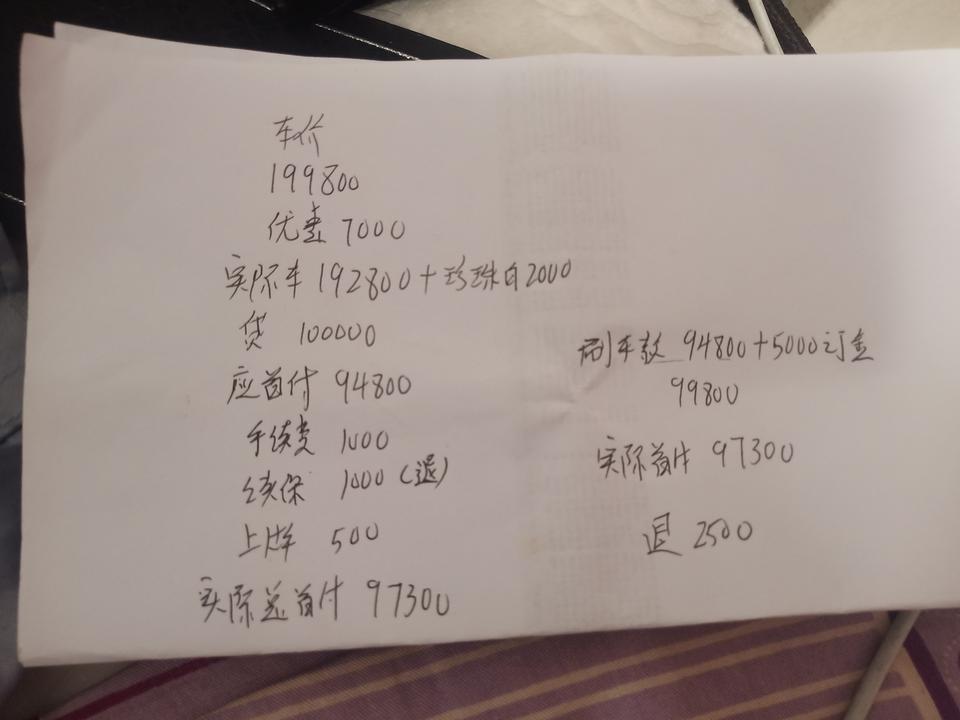 车价
199800
优惠 7000
实际车 192800+珍珠白2000
贷 100000
应首付 94800
手续费 1000
续保 1000(退)
上牌 500
实际总首付 97300
刷车款 94800+5000订金
99800
实际首付 97300
退 2500